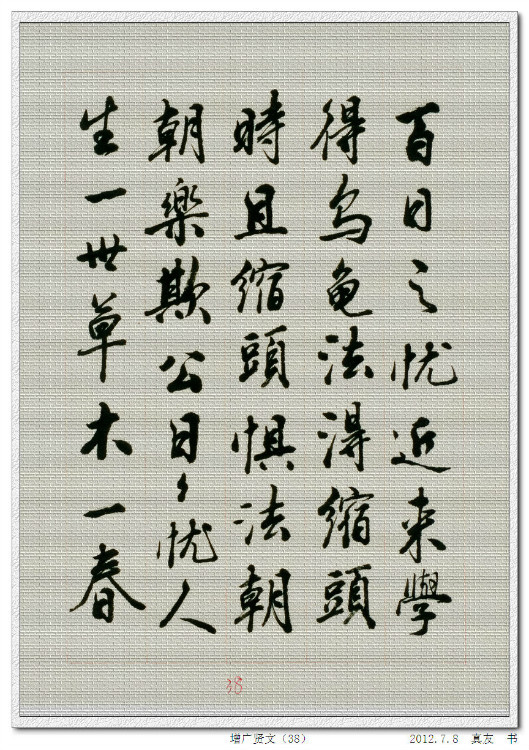 百日之忧近来學
得乌龟法得缩頭
時且缩頭惧法朝
朝樂欺公日〻忧人
生一世草木一春
38
增广贤文（38）
2012.7.8 真友 书